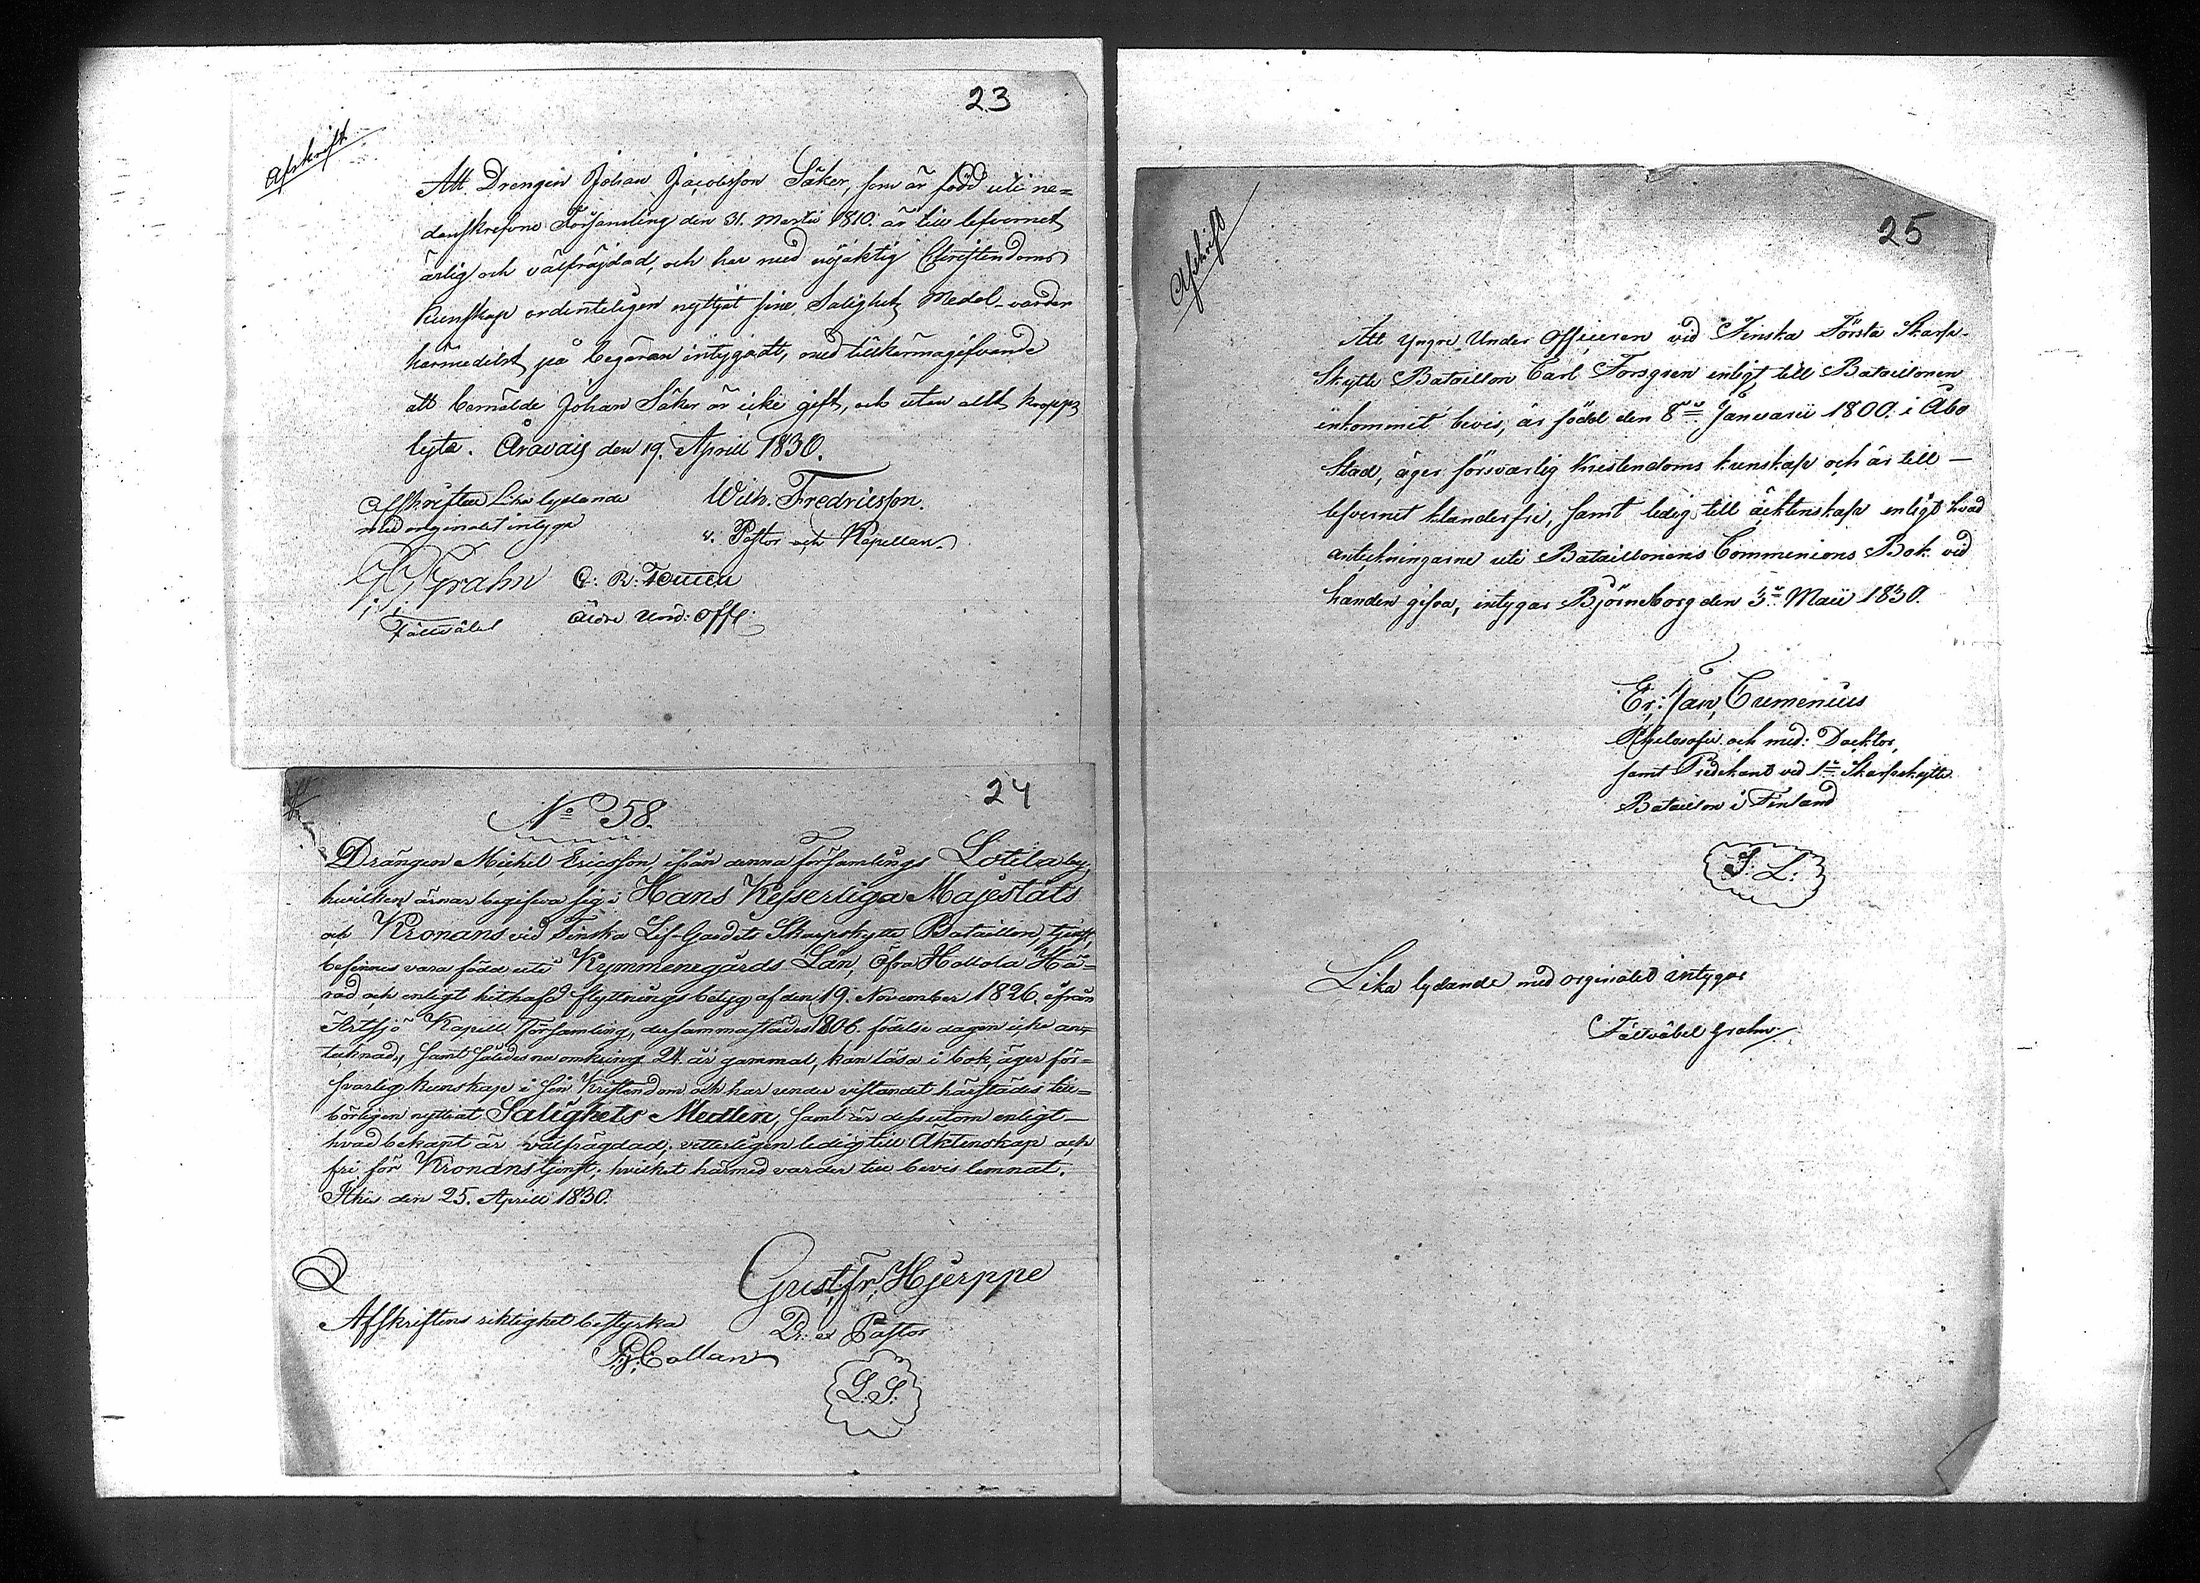 23
Afskrift
Att Drengen Johan Jacobsson Säker, som är född uti ne=
danskrefvne Församling den 31. Martii 1810. är till lefvernet
ärlig och välfrägdad, och har med nöjaktig Christendoms
kunskap ordenteligen nyttjat sine Salighets Medel – varder
härmedelst på begäran intygadt, med tillkännagifvande
att bemälde Johan Säker är icke gift, och utan allt kropps
lyte. Oravais den 19. Aprill 1830.
Wilh. Fredricsson.
v. Pastor och Kapellan.
Afskriften Lika lydande
med originalet intyga
Grahn
Fältväbel
C: R:
Äldre Und: Off:
24
No 58.
Drängen Michel Ericsson, ifrån denna Församlings Lotila by,
hvilken ärnar begifva sig i Hans Kejserliga Majestäts
och Kronans vid Finska Lif-Gardets Skarpskytte Bataillon tjenst,
befinnes vara född uti Kymmenegårds Län, Öfra Hollola Hä=
rad och enligt hithafd flyttningsbetyg af den 19. November 1826. ifrån
Artsjö Kapell Församling, dersammastädes 1806. födelse dagen icke an=
teknad, samt således na omkring 24 år gammal, kan läsa i bok, äger för=
svarlig kunskap i sin Kristendom och har under vistandet härstädes till=
börligen nyttiat Salighets Medlen, samt är dessutom enligt
hvad bekant är välfrägdad, vetterligen ledig till Äktenskap och
fri för Kronans tjenst; hvilket härmed varder till bevis lemnat.
Ithis den 25. Aprill 1830.
Gust: Fr: Hjerppe
Pastor
L. S.
Afskriftens riktighet bestyrka
Collan
25
Afskrift
Att Yngre Under Officeren vid Finska Första Skarp-
Skytte Bataillon Carl Forsgren enligt till Bataillonen
inkommit bevis, är född den 8de Januarii 1800. i Åbo
Stad, äger försvarlig Kristendoms kunskap och är till –
lefvernet klanderfri, samt ledig till äcktenskap enligt hvad
anteckningarne uti Bataillonens Communions Bok vid
handen gifva, intygar Björneborg den 3de Maii 1830.
Er: Jan: Cumenius
Philosofie och med: Docktor,
samt Predikant vid 1a Skarpskytte
Bataillon i Finland
S. L.
Lika lydande med orginalet intygar
Fältväbel Grahn